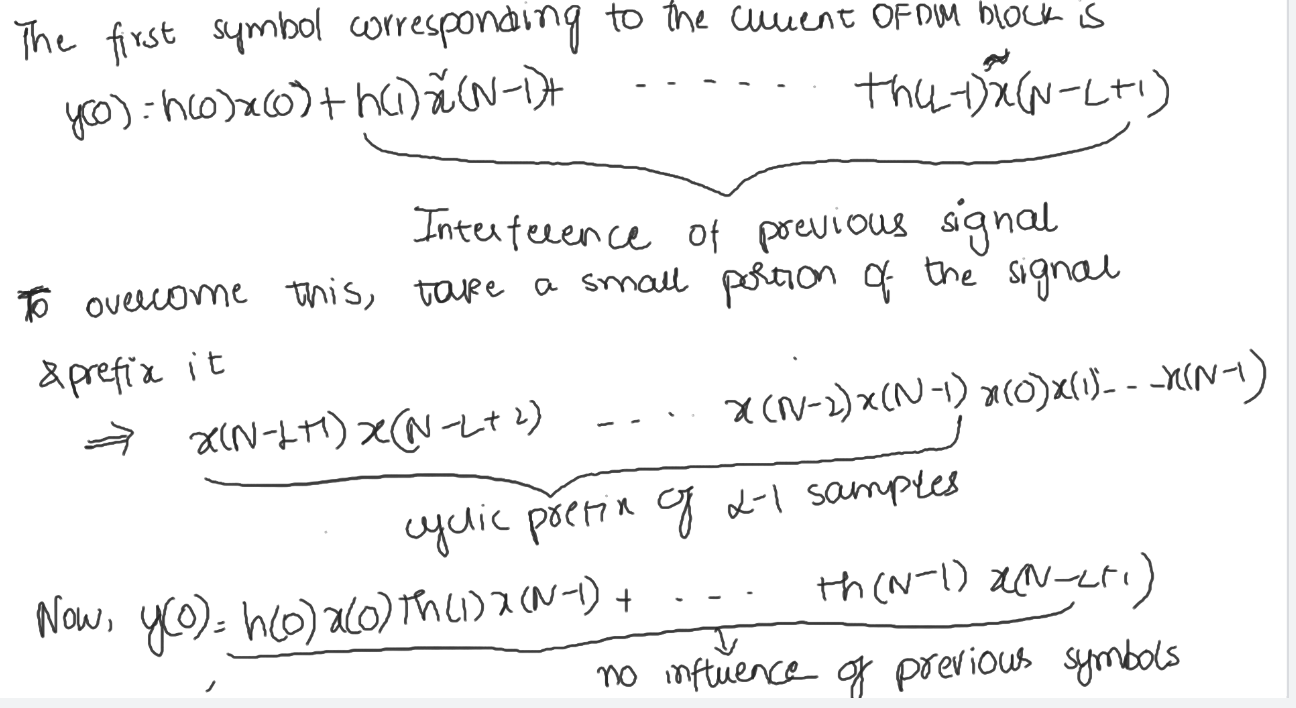 The first symbol corresponding to the current OFDM block is
y(0) = h(0)x(0) + h(1)x̃(N-1)+ - - - - - . +h(L-1)x̃(N-L+1)
Interference of previous signal
To overcome this, take a small portion of the signal
& prefix it
⇒ x(N-L+1) x(N-L+2) - - . . . x(N-2) x(N-1) x(0) x(1) - - - x(N-1)
cyclic prefix of L-1 samples
Now, y(0) = h(0)x(0)+h(1)x(N-1) + . - - . +h(N-1) x(N-L+1)
no influence of previous symbols